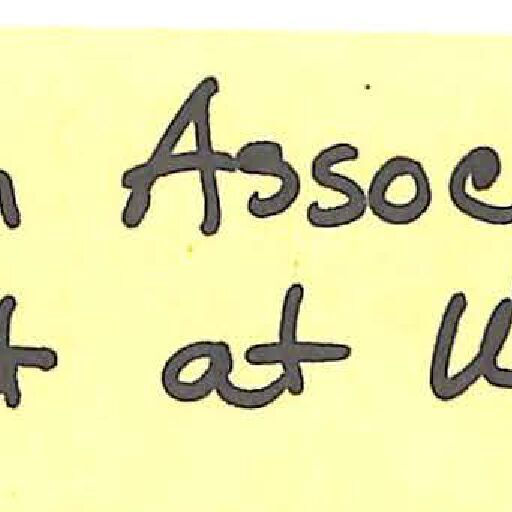 n Assoc
t at W